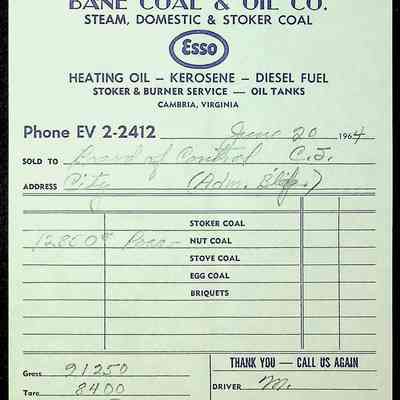 BANE COAL & OIL CO.
STEAM, DOMESTIC & STOKER COAL
Esso
HEATING OIL — KEROSENE — DIESEL FUEL
STOKER & BURNER SERVICE — OIL TANKS
CAMBRIA, VIRGINIA
Phone EV 2-2412 June 20 1964
SOLD TO Board of Control C.I.
ADDRESS City (Adm. Bldg.)
STOKER COAL
12850# Poca- NUT COAL
STOVE COAL
EGG COAL
BRIQUETS
Gross 91250
THANK YOU — CALL US AGAIN
Tare 8400
DRIVER M.